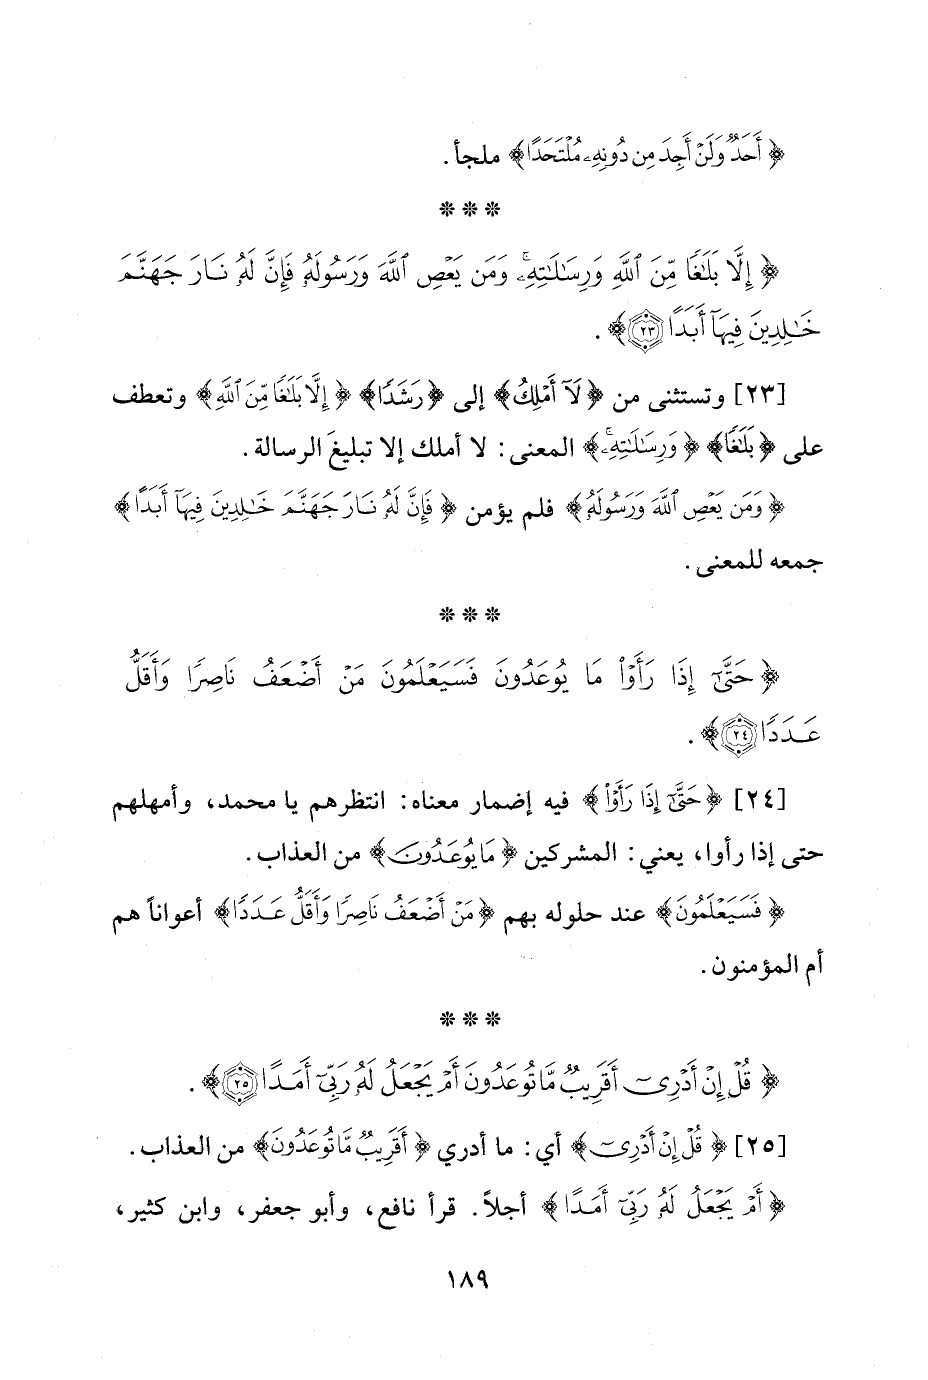 ﴿أَحَدٌ وَلَنْ أَجِدَ مِن دُونِهِۦ مُلْتَحَدًا﴾ ملجأ.
* * *
﴿إِلَّا بَلَٰغًا مِّنَ ٱللَّهِ وَرِسَٰلَٰتِهِۦۚ وَمَن يَعْصِ ٱللَّهَ وَرَسُولَهُۥ فَإِنَّ لَهُۥ نَارَ جَهَنَّمَ
خَٰلِدِينَ فِيهَآ أَبَدًا ٢٣﴾.
[٢٣] وتستثنى من ﴿لَآ أَمْلِكُ﴾ إلى ﴿رَشَدًا﴾ ﴿إِلَّا بَلَٰغًا مِّنَ ٱللَّهِ﴾ وتعطف
على ﴿بَلَٰغًا﴾ ﴿وَرِسَٰلَٰتِهِۦۚ﴾ المعنى: لا أملك إلا تبليغَ الرسالة.
﴿وَمَن يَعْصِ ٱللَّهَ وَرَسُولَهُۥ﴾ فلم يؤمن ﴿فَإِنَّ لَهُۥ نَارَ جَهَنَّمَ خَٰلِدِينَ فِيهَآ أَبَدًا﴾
جمعه للمعنى.
* * *
﴿حَتَّىٰٓ إِذَا رَأَوْا۟ مَا يُوعَدُونَ فَسَيَعْلَمُونَ مَنْ أَضْعَفُ نَاصِرًا وَأَقَلُّ
عَدَدًا ٢٤﴾.
[٢٤] ﴿حَتَّىٰٓ إِذَا رَأَوْا۟﴾ فيه إضمار معناه: انتظرهم يا محمد، وأمهلهم
حتى إذا رأوا، يعني: المشركين ﴿مَا يُوعَدُونَ﴾ من العذاب.
﴿فَسَيَعْلَمُونَ﴾ عند حلوله بهم ﴿مَنْ أَضْعَفُ نَاصِرًا وَأَقَلُّ عَدَدًا﴾ أعواناً هم
أم المؤمنون.
* * *
﴿قُلْ إِنْ أَدْرِىٓ أَقَرِيبٌ مَّا تُوعَدُونَ أَمْ يَجْعَلُ لَهُۥ رَبِّىٓ أَمَدًا ٢٥﴾.
[٢٥] ﴿قُلْ إِنْ أَدْرِىٓ﴾ أي: ما أدري ﴿أَقَرِيبٌ مَّا تُوعَدُونَ﴾ من العذاب.
﴿أَمْ يَجْعَلُ لَهُۥ رَبِّىٓ أَمَدًا﴾ أجلاً. قرأ نافع، وأبو جعفر، وابن كثير،
١٨٩